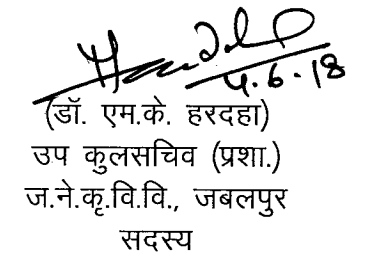 4.6.18
(डॉ. एम.के. हरदहा)
उप कुलसचिव (प्रशा.)
ज.ने.कृ.वि.वि., जबलपुर
सदस्य